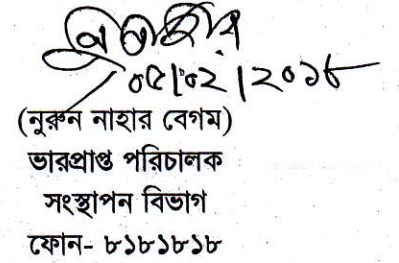 নুরুন নাহার
০৫/০২/২০১৮
(নুরুন নাহার বেগম)
ভারপ্রাপ্ত পরিচালক
সংস্থাপন বিভাগ
ফোন- ৮১৮১৮১৮